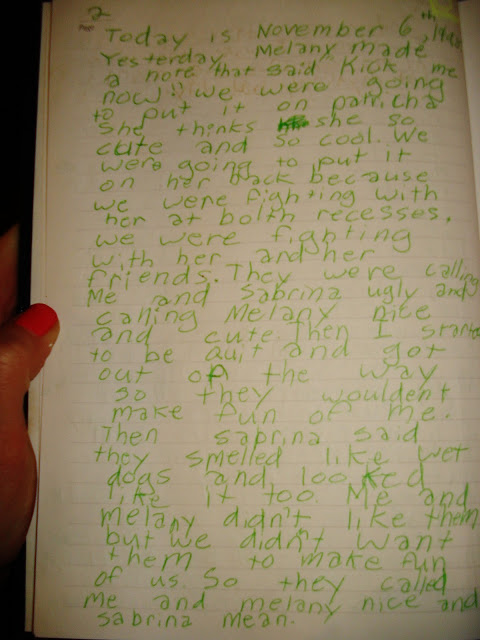 2
Today is November 6th,
Yesterday Melany made
a note that said "Kick me
now" we were going
to put it on patricha
she thinks she so
cute and so cool. We
were going to put it
on her back because
we were fighting with
her at bolth recesses.
we were fighting
with her and her
friends. They were calling
Me and Sabrina ugly and
calling Melany nice
and cute. Then I started
to be quit and got
out of the way
so they wouldent
make fun of me.
Then sabrina said
they smelled like wet
dogs and looked
like it too. Me and
melany didn't like them
but we didn't want
them to make fun
of us. So they called
me and melany nice and
sabrina mean.